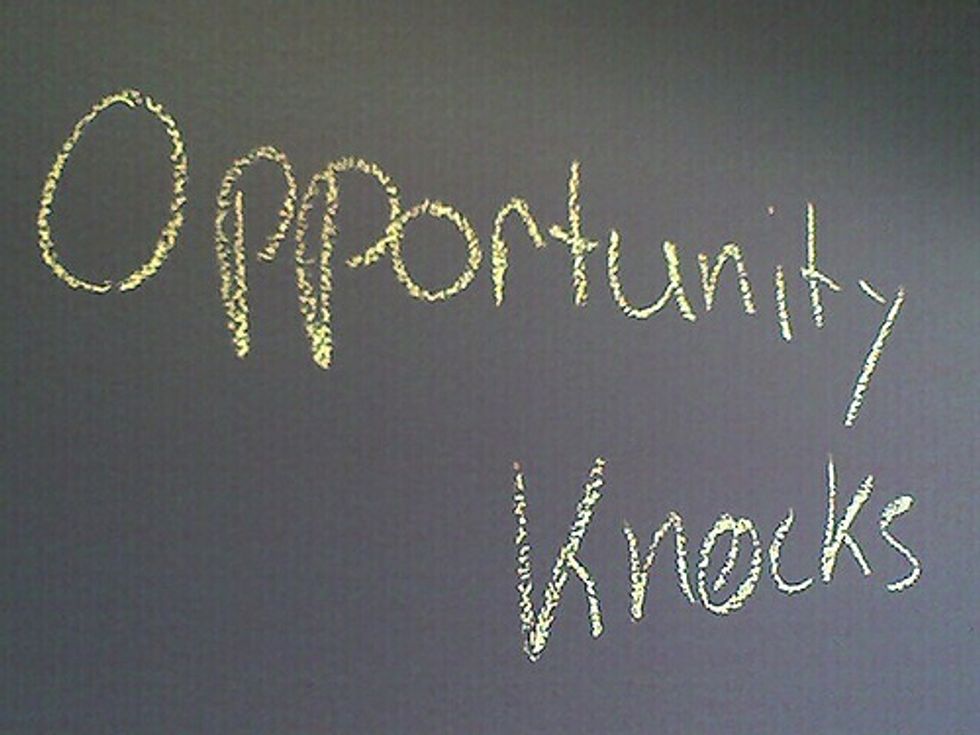 Opportunity
Knocks